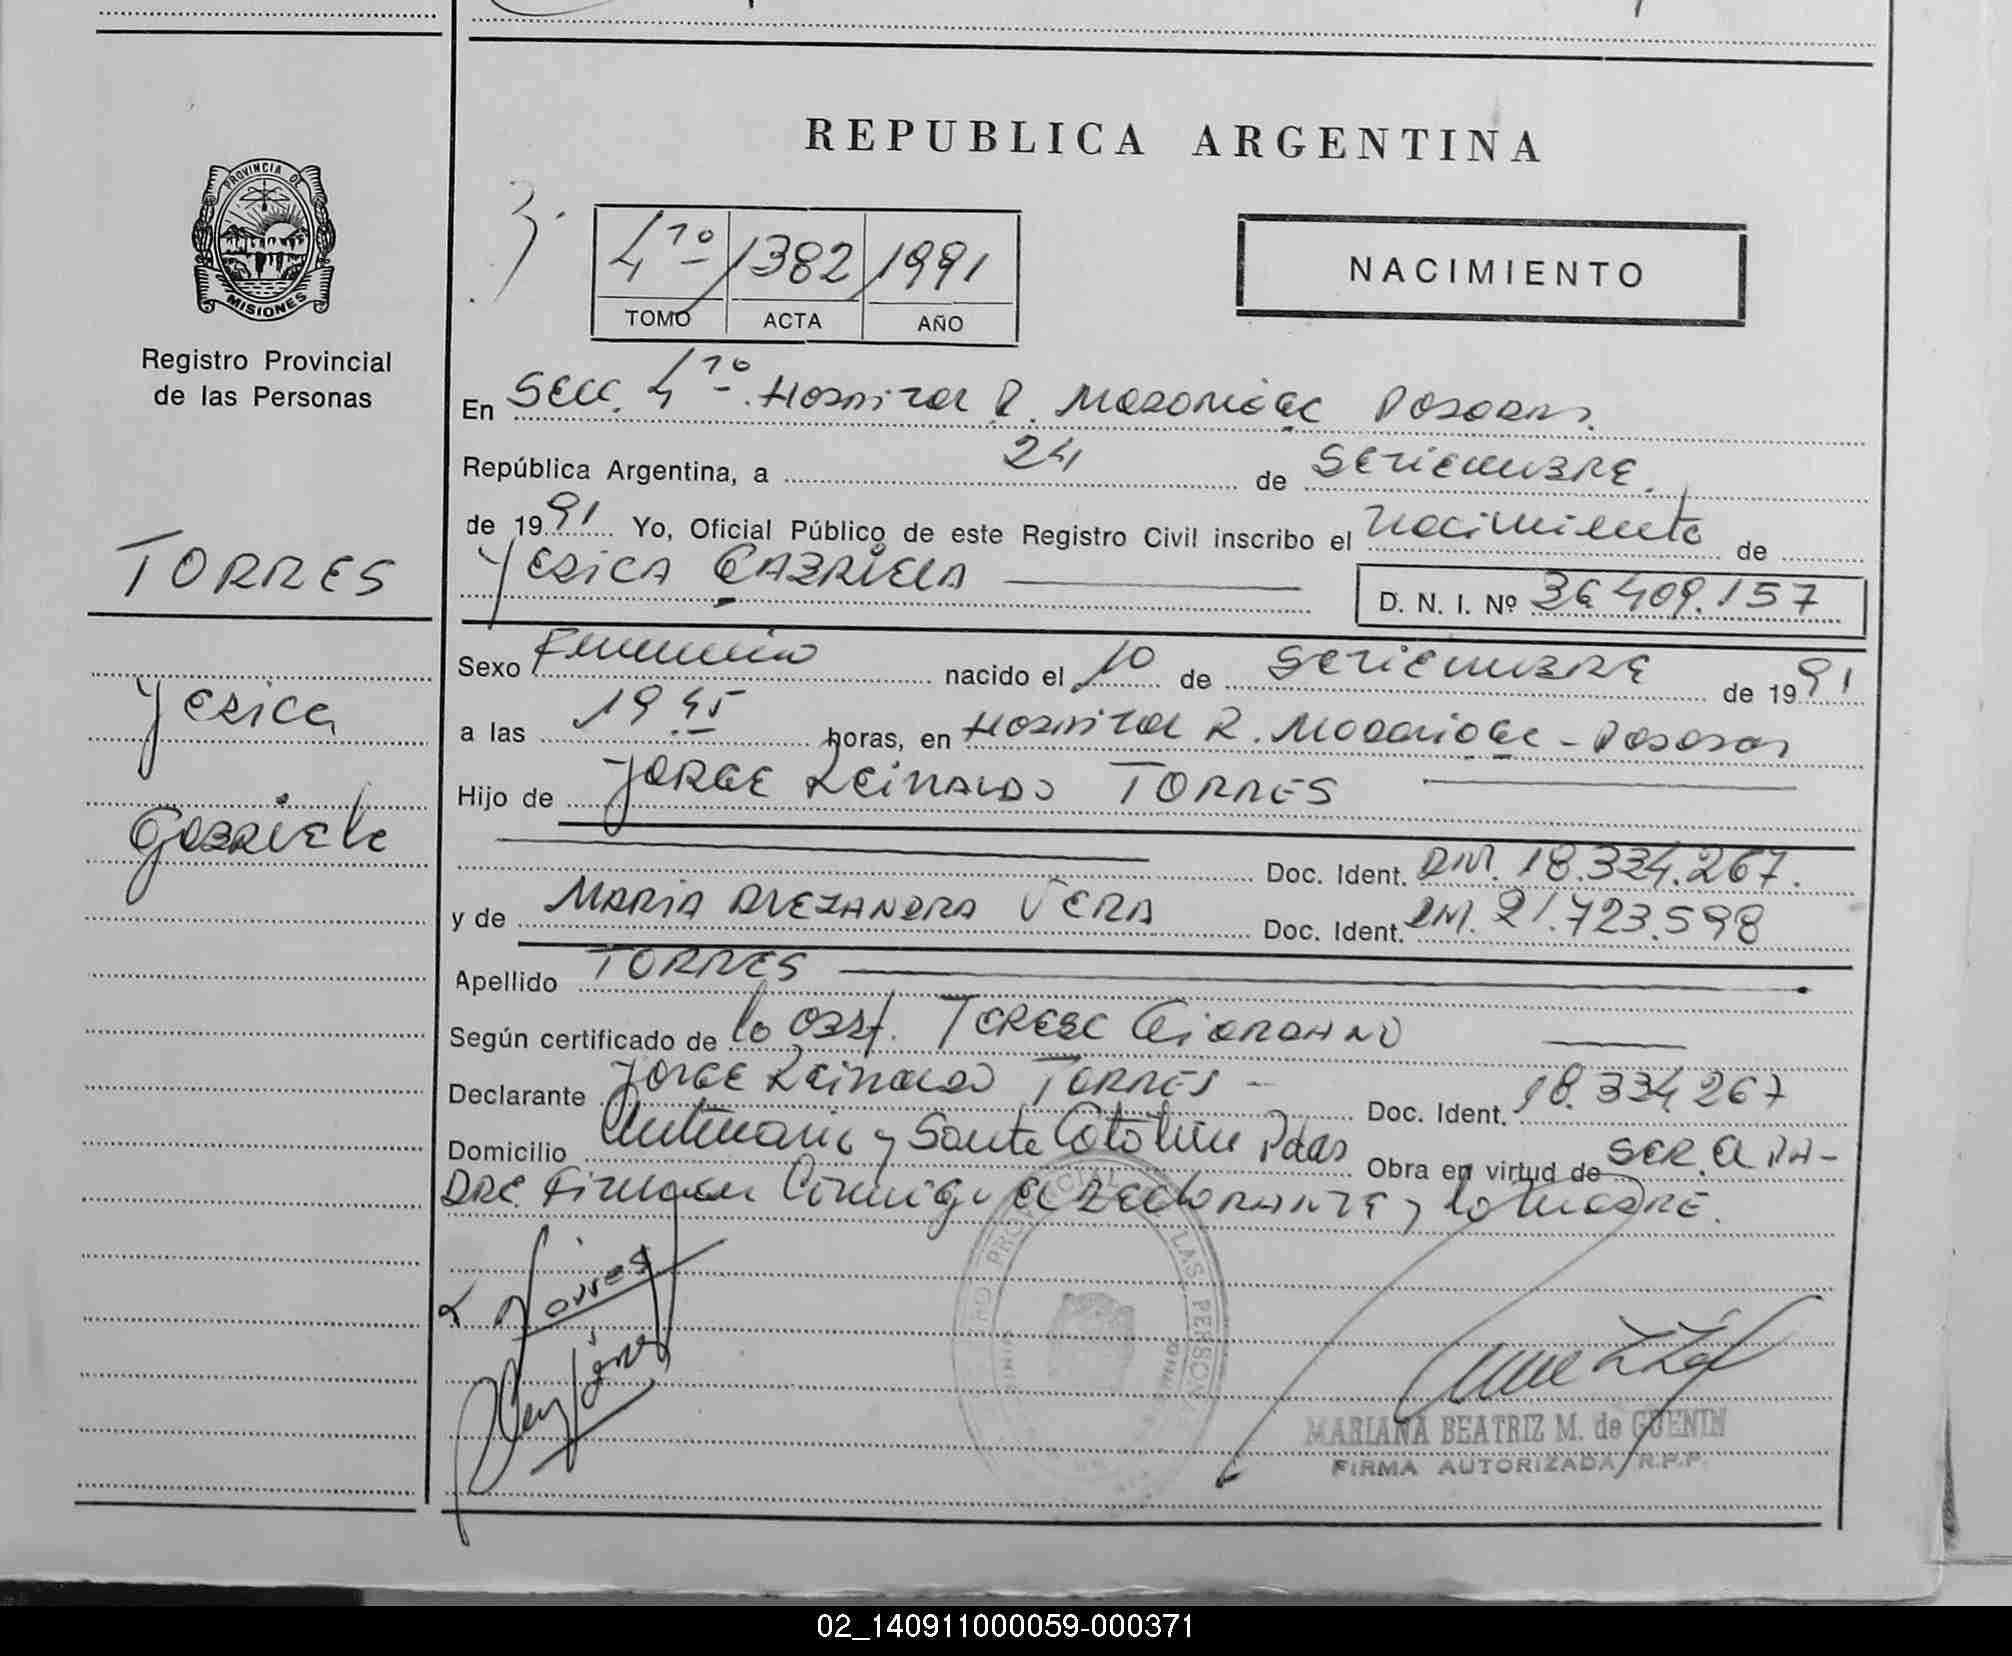 REPUBLICA ARGENTINA
PROVINCIA DE MISIONES
Registro Provincial
de las Personas
4to 1382 1991
TOMO ACTA AÑO
NACIMIENTO
En Secc. 4to. Hospital R. Madariaga Posadas.
República Argentina, a 24 de SETIEMBRE.
de 1991 Yo, Oficial Público de este Registro Civil inscribo el nacimiento de
YESICA GABRIELA
D. N. I. Nº 36.409.157
TORRES
Yesica
Gabriela
Sexo Femenino nacido el 10 de SETIEMBRE de 1991
a las 19.45 horas, en Hospital R. Madariaga - Posadas
Hijo de JORGE REINALDO TORRES
Doc. Ident. DNI. 18.334.267.
y de MARIA ALEJANDRA VERA Doc. Ident. DNI. 21.723.598
Apellido TORRES
Según certificado de la Obst. TERESA GIORDANO
Declarante JORGE Reinaldo TORRES - Doc. Ident. 18.334 267
Domicilio Centenario y Santa Catalina Pdas Obra en virtud de SER el PA-
DRE. Firman Conmigo el declarante y la madre.
Torres
MARIANA BEATRIZ M. de GUENIN
FIRMA AUTORIZADA R.P.P.
02_140911000059-000371